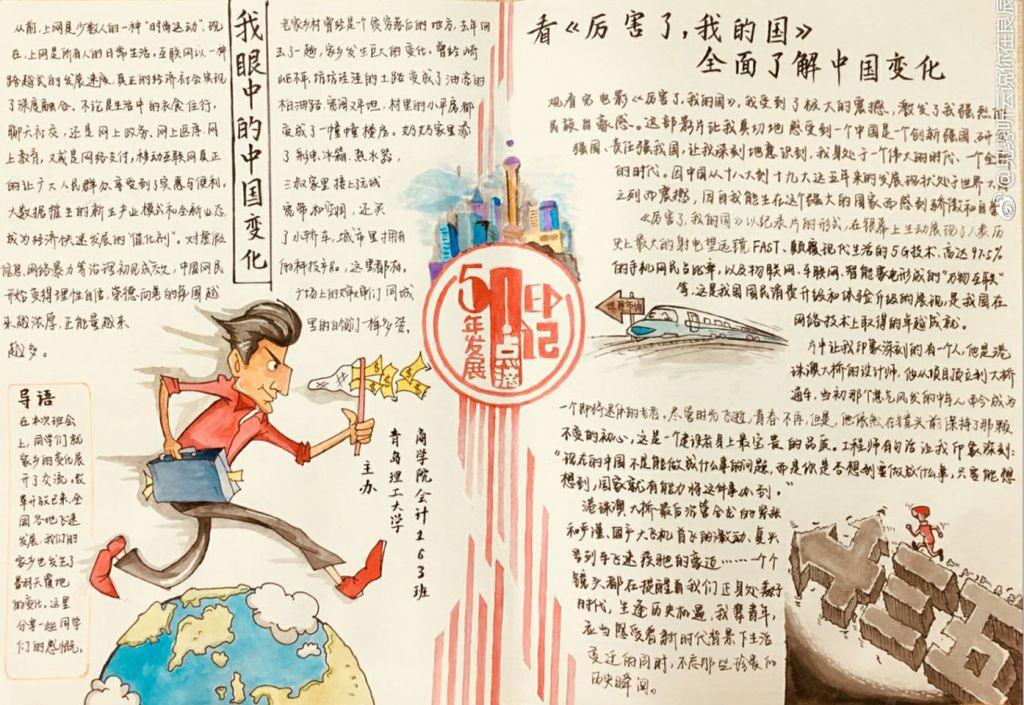 我眼中的中国变化
从前，上网是少数人的一种“时尚运动”，现
在，上网是所有人的日常生活。互联网以一种
跨越式的发展速度，真正的经济社会实现
了深度融合。不论是生活中的衣食住行，
聊天社交，还是网上政务、网上医疗、网
上教育，又或是网络支付，移动互联网真正
的让广大人民群众享受到了实惠与便利。
大数据催生的新生产业模式和全新业态
成为经济快速发展的“催化剂”。对虚假
信息、网络暴力等治理初见成效，中国网民
开始变得理性自信，崇德向善的氛围越
来越浓厚，正能量越来
越多。
老家乡村曾经是个贫穷落后的地方，去年回
去了一趟，家乡发生巨大的变化。曾经崎
岖不平、坑坑洼洼的土路变成了油亮的
柏油路，宽阔平坦，村里的小平房都
变成了一幢幢楼房。奶奶家里添
了彩电、冰箱、热水器，
三叔家里接上玩城
宽带和空调，还买
了小轿车，城市里拥有
的科技产品，这里都有。
广场上的
里的
导语
在本次班会
上，同学们就
家乡的变化展
开了交流。改
革开放已来，全
国各地飞速
发展，我们的
家乡也发生了
翻天覆地
的变化，这里
分享一些同学
们的感慨。
主办
青岛理工大学
商学院会计163班
5年发展
点滴
印记
看《厉害了，我的国》
全面了解中国变化
观看完电影《厉害了，我的国》，我受到了极大的震撼，激发了我强烈的
民族自豪感。这部影片让我真切地感受到一个中国是一个创新强国、研
强国、责任强我国，让我深刻地意识到，我身处于一个伟大的时代、一个全
的时代。因中国从十八大到十九大这五年来的发展现状处于世界大
之列而震撼，因自我能生在这个强大的国家而感到骄傲和自豪
《厉害了，我的国》以纪录片的形式，在银幕上生动展现了人类历
史上最大的射电望远镜FAST、颠覆现代生活的5G技术、高达97.5%
的手机网民占比率，以及物联网、车联网、智能家电形成的“万物互联”
等，这是我国国民消费升级和体验升级的展现，是我国在
网络技术上取得的卓越成就。
世界第一
片中让我印象深刻的有一个人，他是港
珠澳大桥的设计师，他从项目设立到大桥
通车，当初那个意气风发的中年人而今成为
一个即将退休的老者。尽管时光飞逝，青春不再，但是，他依然在镜头前保持了那颗
不变的初心，这是一个建设者身上最宝贵的品质。工程师有句话让我印象深刻：
“现在的中国不是能做成什么事的问题，而是你是否想到要做成什么事，只要能想
想到，国家就有能力将这件事办到。”
港珠澳大桥最后沉管合龙的紧张
和严谨，国产大飞机首飞的激动，复兴
号列车飞速疾驰的豪迈……一个个
镜头都在提醒着我们正身处美好
时代，生逢历史机遇，我辈青年，
应当感受着新时代背景下生活
变迁的同时，不忘那些珍贵的
历史瞬间。
十三五